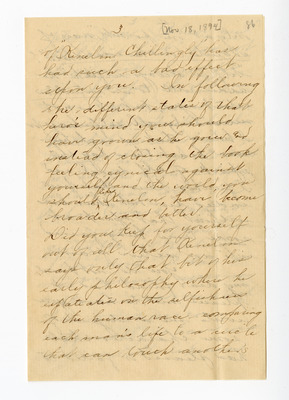 3 [Nov 18, 1894] 86
of Kenelm Chillingly has
had such a bad effect
upon you. In following
the different states of that
hero's mind you should
have grown as he grew and
instead of closing the book
feeling cynical against
yourself and the world, you
should, like Kenelm, have become
broader and better.
Did you keep for yourself
out of all that Kenelm
says only that bit of his
early philosophy where he
expatiates on the selfishness
of the human race comparing
each man's life to a circle
that can touch another's